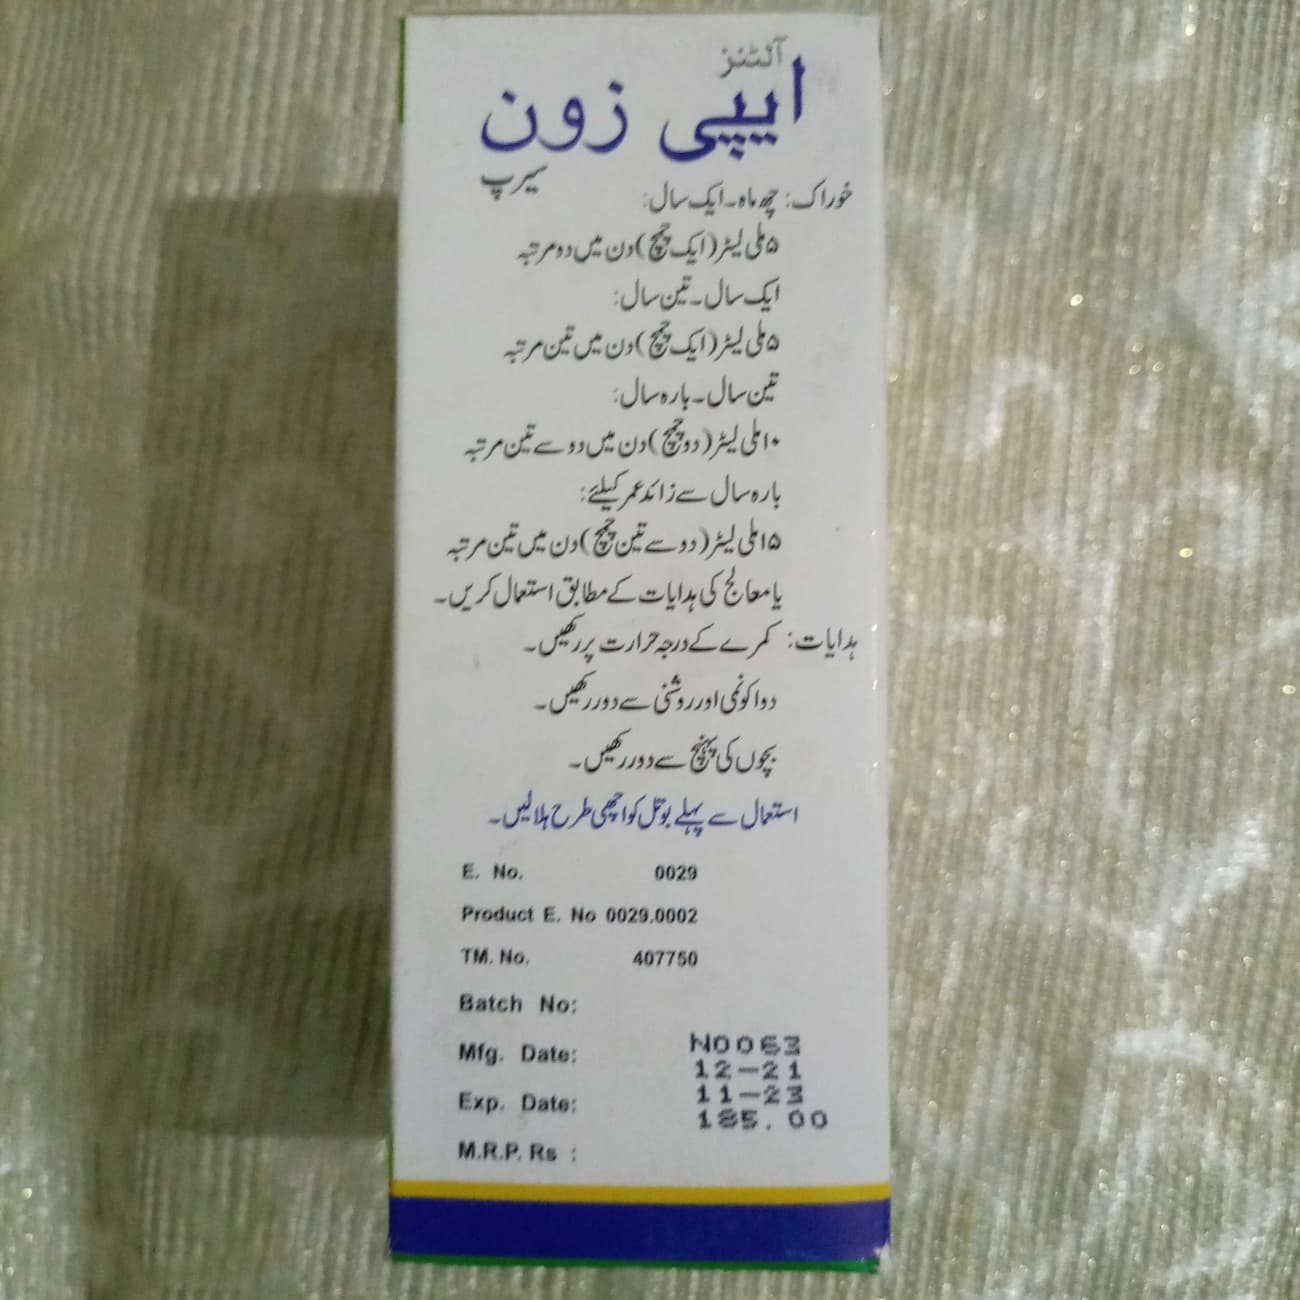 آلٹنز
ایپی زون
سیرپ
خوراک: چھ ماہ۔ایک سال:
۵ ملی لیٹر (ایک چمچ) دن میں دو مرتبہ
ایک سال۔تین سال:
۵ ملی لیٹر (ایک چمچ) دن میں تین مرتبہ
تین سال۔بارہ سال:
۱۰ ملی لیٹر (دو چمچ) دن میں دو سے تین مرتبہ
بارہ سال سے زائد عمر کیلئے:
۱۵ ملی لیٹر (دو سے تین چمچ) دن میں تین مرتبہ
یا معالج کی ہدایات کے مطابق استعمال کریں۔
ہدایات: کمرے کے درجہ حرارت پر رکھیں۔
دوا کو نمی اور روشنی سے دور رکھیں۔
بچوں کی پہنچ سے دور رکھیں۔
استعمال سے پہلے بوتل کو اچھی طرح ہلا لیں۔
E. No. 0029
Product E. No 0029.0002
TM. No. 407750
Batch No: N0063
Mfg. Date: 12-21
Exp. Date: 11-23
M.R.P. Rs : 185.00